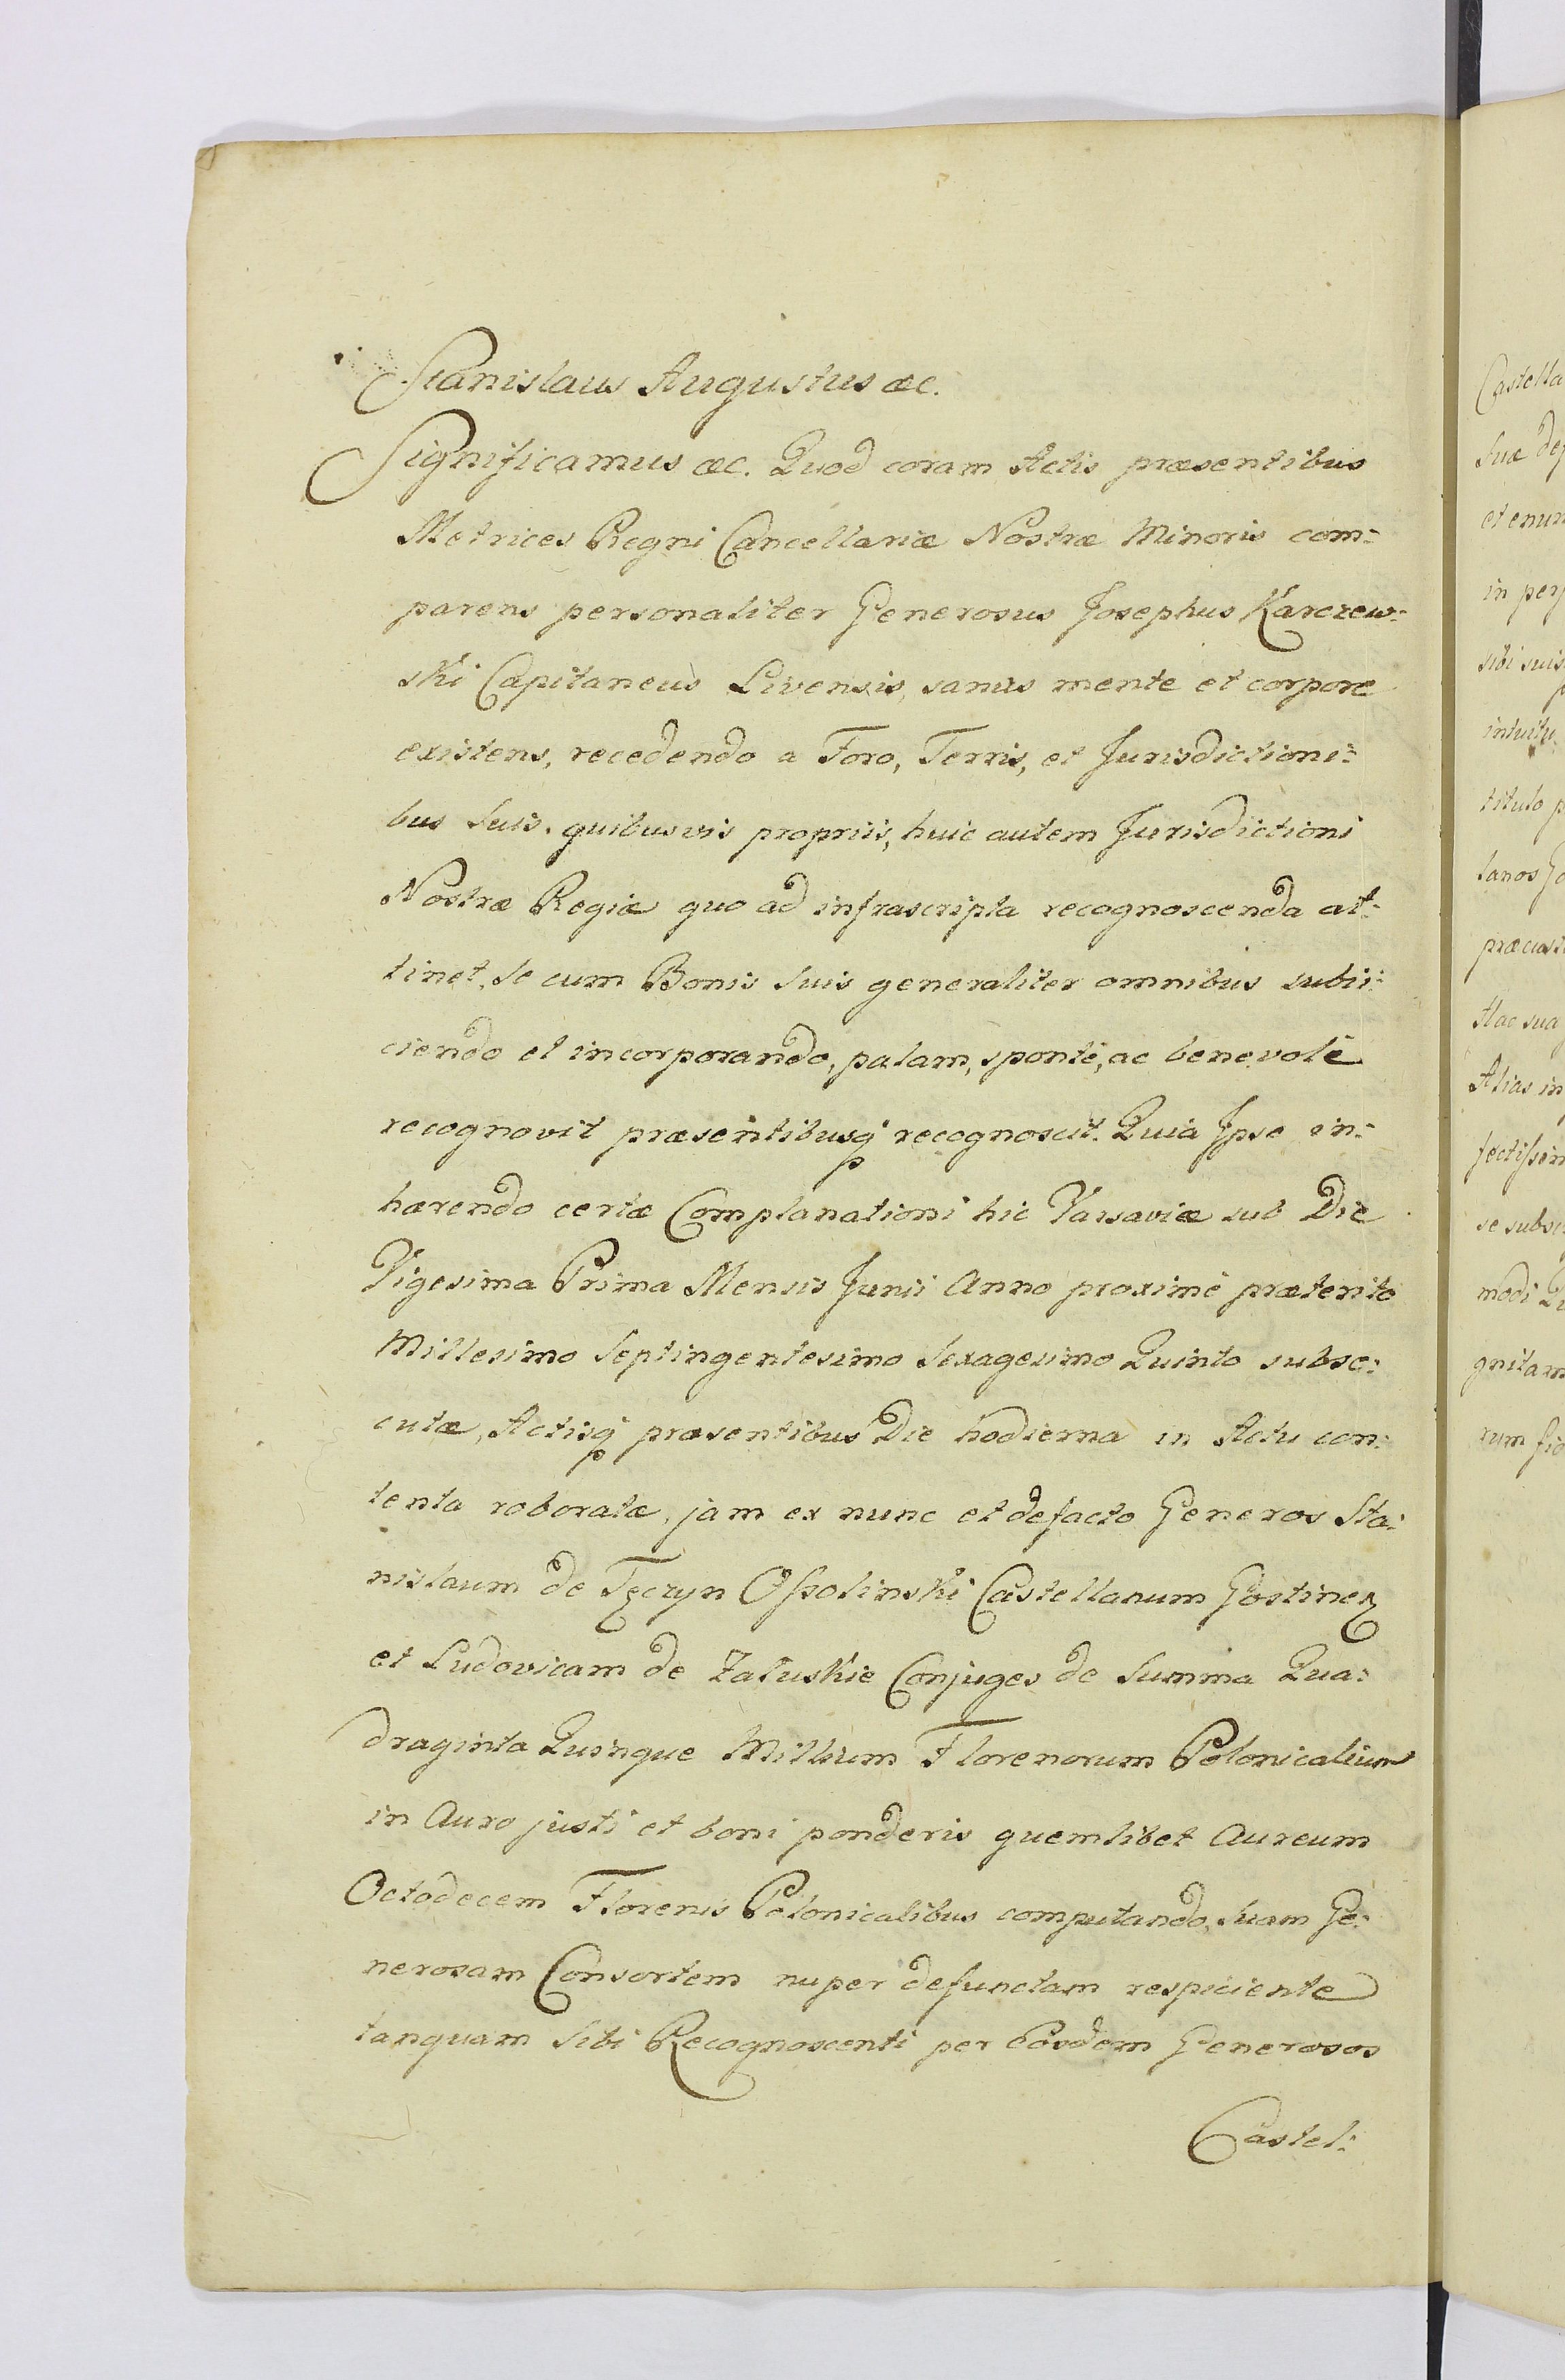 Stanislaus Augustus &c.
Significamus &c. Quod coram Actis præsentibus
Metrices Regni Cancellariæ Nostræ Minoris com=
parens personaliter Generosus Josephus Karczew=
ski Capitaneus Livensis, sanus mente et corpore
existens, recedendo a Foro, Terris, et Jurisdictioni=
bus Suis quibusvis propriis, huic autem Jurisdictioni
Nostræ Regiæ quo ad infrascripta recognoscenda at=
tinet, Se cum Bonis Suis generaliter omnibus subii=
ciendo et incorporando, palam, sponte, ac benevolè
recognovit præsentibusq recognoscit. Quia Ipse in=
hærendo certæ Complanationi hic Varsaviæ sub Die
Vigesima Prima Mensis Junii Anno proximè præterito
Millesimo Septingentesimo Sexagesimo Quinto subse=
cutæ, Actisq præsentibus Die hodierna in Actu con=
tenta roboratæ, jam ex nunc et defacto Generos Sta=
nislaum de Tęczyn Ossolinski Castellanum Gostinen
et Ludovicam de Załuskie Conjuges de Summa Qua=
draginta Quinque Millium Florenorum Polonicalium
in Auro justi et boni ponderis quemlibet Aureum
Octodecem Florenis Polonicalibus computando, Suam Ge=
nerosam Consortem nuper defunctam respiciente
tanquam Sibi Recognoscenti per Eosdem Generosos
Castel=
Castella
Suæ
et enun
in per
sibi suis
intuitu
titulo p
lanos
Hac sua
Alias in
fectissim
se subsc
modi
gnitam
rum